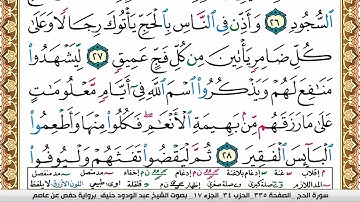 ٱلسُّجُودِ ٢٦ وَأَذِّن فِى ٱلنَّاسِ بِٱلْحَجِّ يَأْتُوكَ رِجَالًا وَعَلَىٰ
كُلِّ ضَامِرٍ يَأْتِينَ مِن كُلِّ فَجٍّ عَمِيقٍ ٢٧ لِّيَشْهَدُوا۟
مَنَـٰفِعَ لَهُمْ وَيَذْكُرُوا۟ ٱسْمَ ٱللَّهِ فِىٓ أَيَّامٍ مَّعْلُومَـٰتٍ
عَلَىٰ مَا رَزَقَهُم مِّنۢ بَهِيمَةِ ٱلْأَنْعَـٰمِ فَكُلُوا۟ مِنْهَا وَأَطْعِمُوا۟
ٱلْبَآئِسَ ٱلْفَقِيرَ ٢٨ ثُمَّ لْيَقْضُوا۟ تَفَثَهُمْ وَلْيُوفُوا۟
سورة الحج الصفحة ٣٣٥ الحزب ٣٤ الجزء ١٧ بصوت الشيخ عبد الودود حنيف برواية حفص عن عاصم